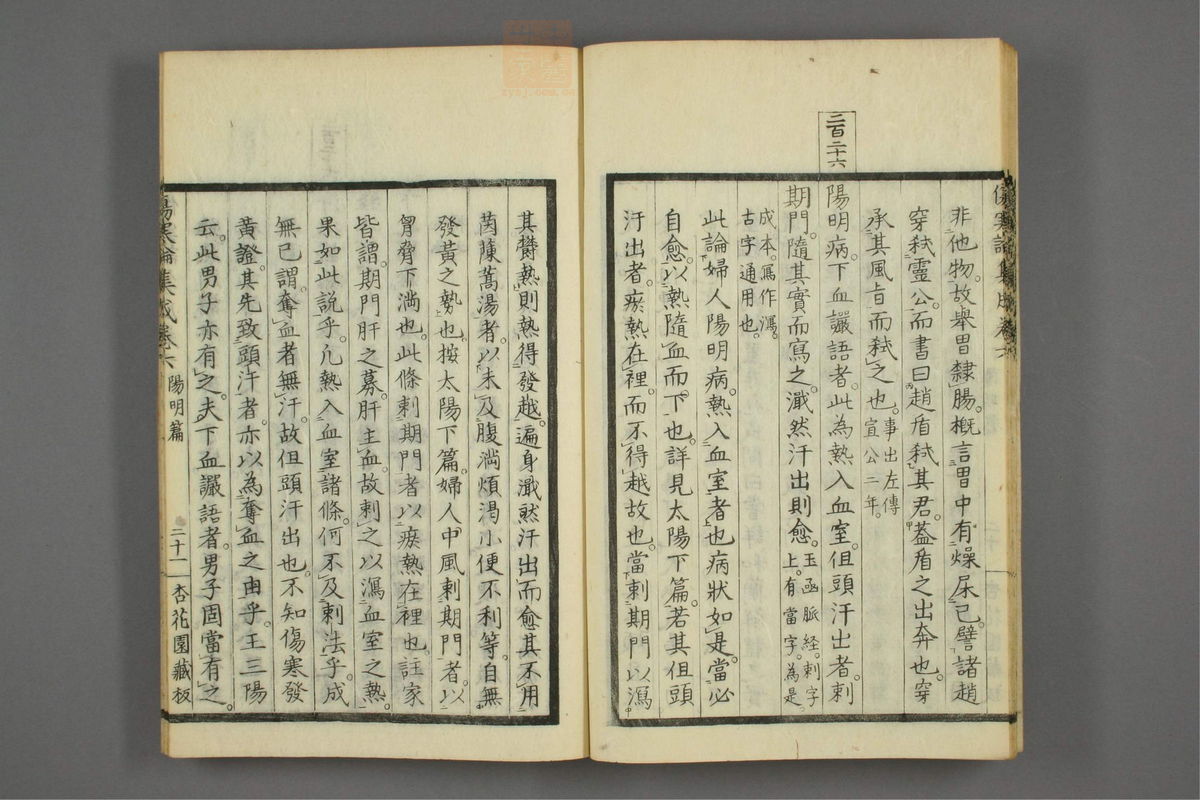 二百二十六
非他物。故舉胃隸腸。概言胃中有燥屎已。譬諸趙
穿弒靈公。而書曰趙盾弒其君。蓋盾之出奔也。穿
承其風旨而弒之也。事出左傳
宣公二年。
陽明病。下血讝語者。此為熱入血室。但頭汗出者。刺
期門。隨其實而寫之。濈然汗出則愈。玉函脈經。刺字
上。有當字。為是。
成本。寫作瀉。
古字通用也。
此論婦人陽明病。熱入血室者也。病狀如是。當必
自愈。以熱隨血而下也。詳見太陽下篇。若其但頭
汗出者。瘀熱在裡。而不得越故也。當刺期門以瀉
其鬱熱。則熱得發越。遍身濈然汗出而愈。其不用
茵蔯蒿湯者。以未及腹滿煩渴小便不利等。自無
發黃之勢也。按太陽下篇。婦人中風刺期門者。以
胷脅下滿也。此條刺期門者以瘀熱在裡也。註家
皆謂。期門肝之募。肝主血。故刺之以瀉血室之熱。
果如此說乎。凡熱入血室諸條。何不及刺法乎。成
無已謂。奪血者無汗。故但頭汗出也。不知傷寒發
黃證。其先致頭汗者。亦以為奪血之由乎。王三陽
云。此男子亦有之。夫下血讝語者。男子固當有之。
傷寒論集成卷六
陽明篇
三十一
杏花園藏板
傷寒論集成卷六